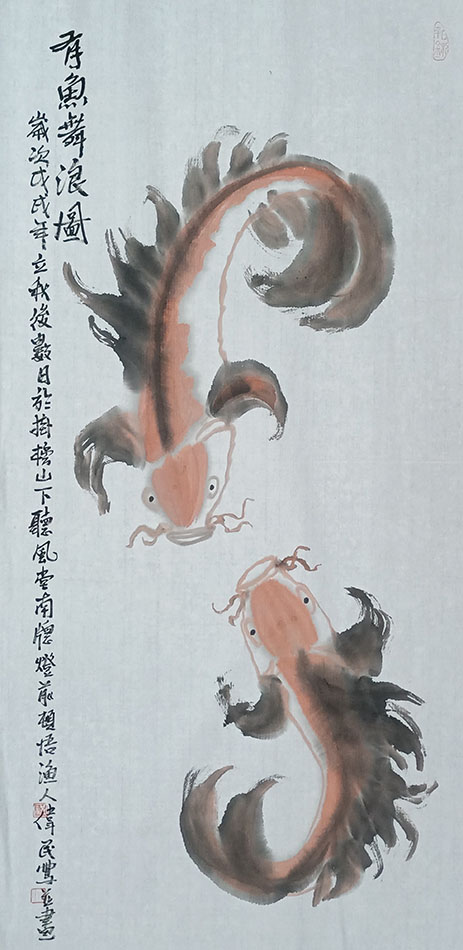 有魚舞浪圖
歲次戊戌年立秋後數日於掛榜山下聽風堂南牕燈前頓悟漁人偉民寫並畫